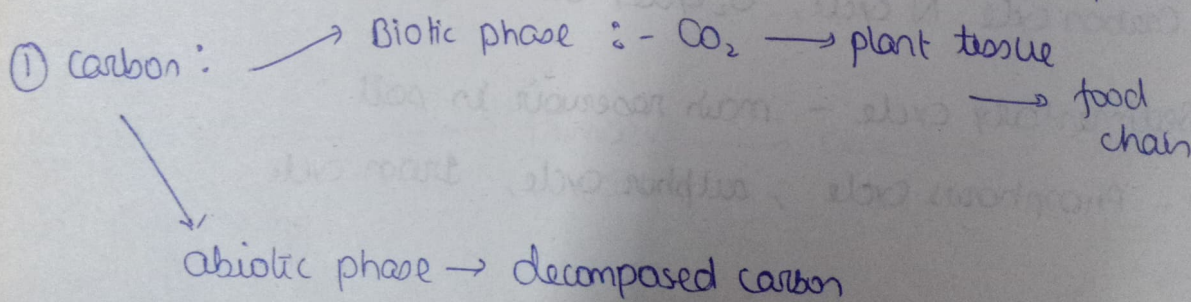 ① Carbon : → Biotic phase :- CO₂ → plant tissue
→ food
chain
abiotic phase → decomposed carbon